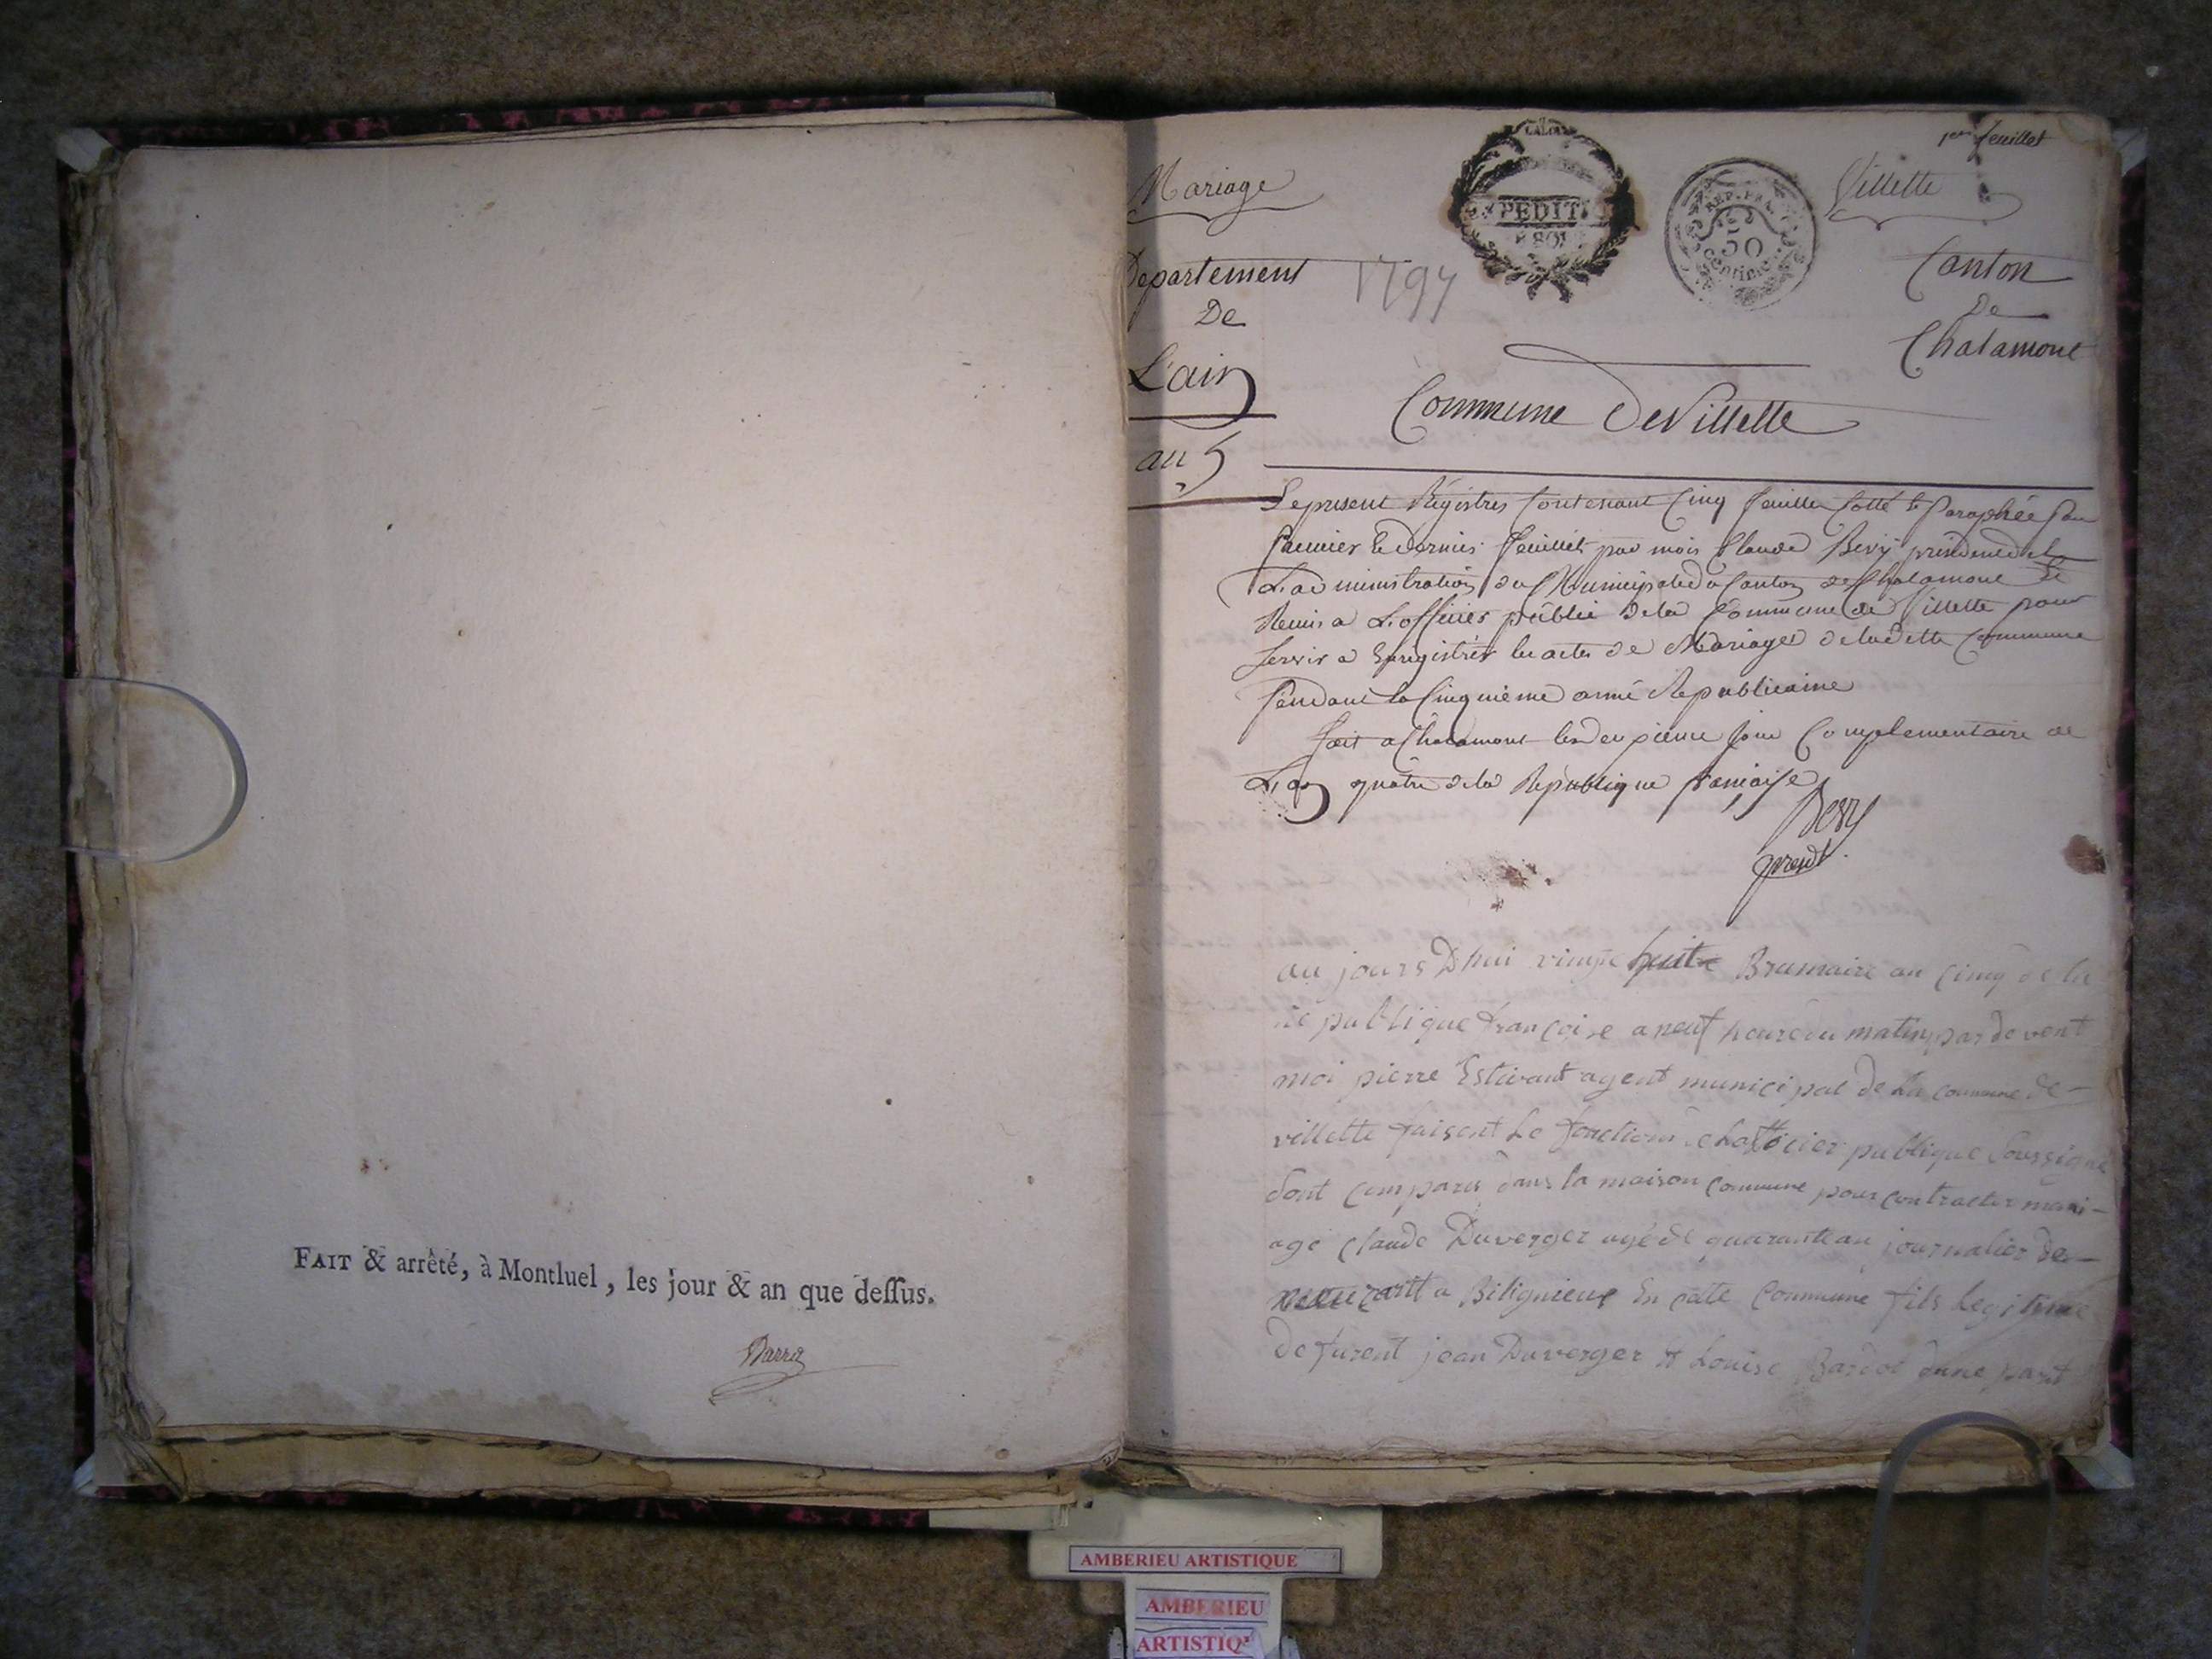 FAIT & arrêté, à Montluel, les jour & an que dessus.
1er feuillet
Mariage
Villette
EXPEDIT
REP. FRA.
50
centime
Departement
De
L'ain
1797
Canton
De
Chalamont
Commune De Villette
an 5
Le present Régistres Contenant Cinq feuillet Cotté & Paraphée Par
Premier & dernier feuillet par mois Claude Bery président de
L'administration du Municipale du Canton de Chalamont &
Remis a L'officier public de la Commune de Villette pour
servir a Enrégistrer les actes de Mariages de ladette Commune
Pendant la Cinquieme anné Republicaine
fait a Chalamont le deuxieme jour Complementaire de
L'an quatre de la République francaise
Bery
presdt.
au jours Dhui vingt huite Brumaire an cinq de la
re publique françoise a neuf heure du matin par de vent
moi pierre Estivant agent municipal De La commune de -
villette faisent Le fonction de Lofficier publique Soussigné
Sont comparu dans la maison commune pour contracter mari-
age claude Duverger agé de quarante an journalier de -
meurant a Bilignieux En cate Commune fils Legitime
De furent jean Duverger et Louise Bardol dune part
AMBERIEU ARTISTIQUE
AMBERIEU
ARTISTIQ